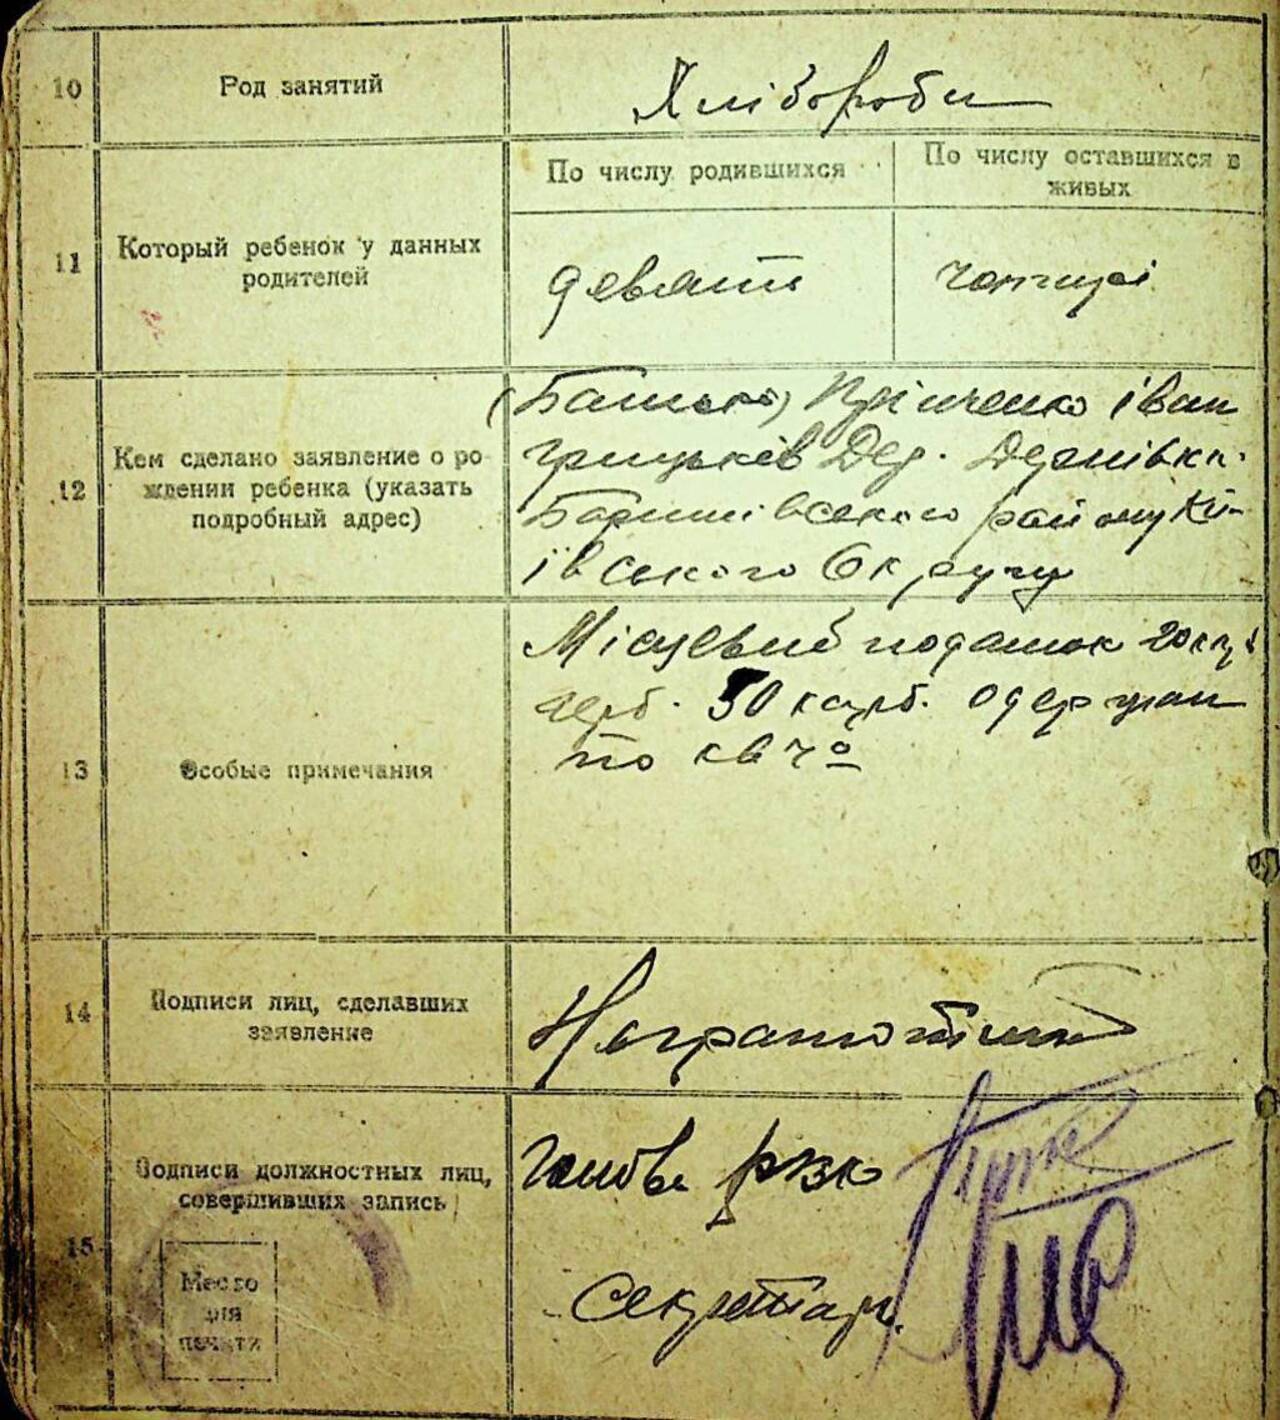 10
Род занятий
Хлібороби
11
Который ребенок у данных
родителей
По числу родившихся
По числу оставшихся в
живых
девяти
чотирі
12
Кем сделано заявление о ро-
ждении ребенка (указать
подробный адрес)
(Батько) Іван
Грицьків Дер. Дернівка
Баришівського району Ки-
ївського Округу
13
Особые примечания
Місцевий податок 20 коп.
герб. 50 карб. одержан
по кв чо
14
Подписи лиц, сделавших
заявление
Неграмотний
15
Подписи должностных лиц,
совершивших запись
Место
для
печати
Голова рвк
Секретарь.